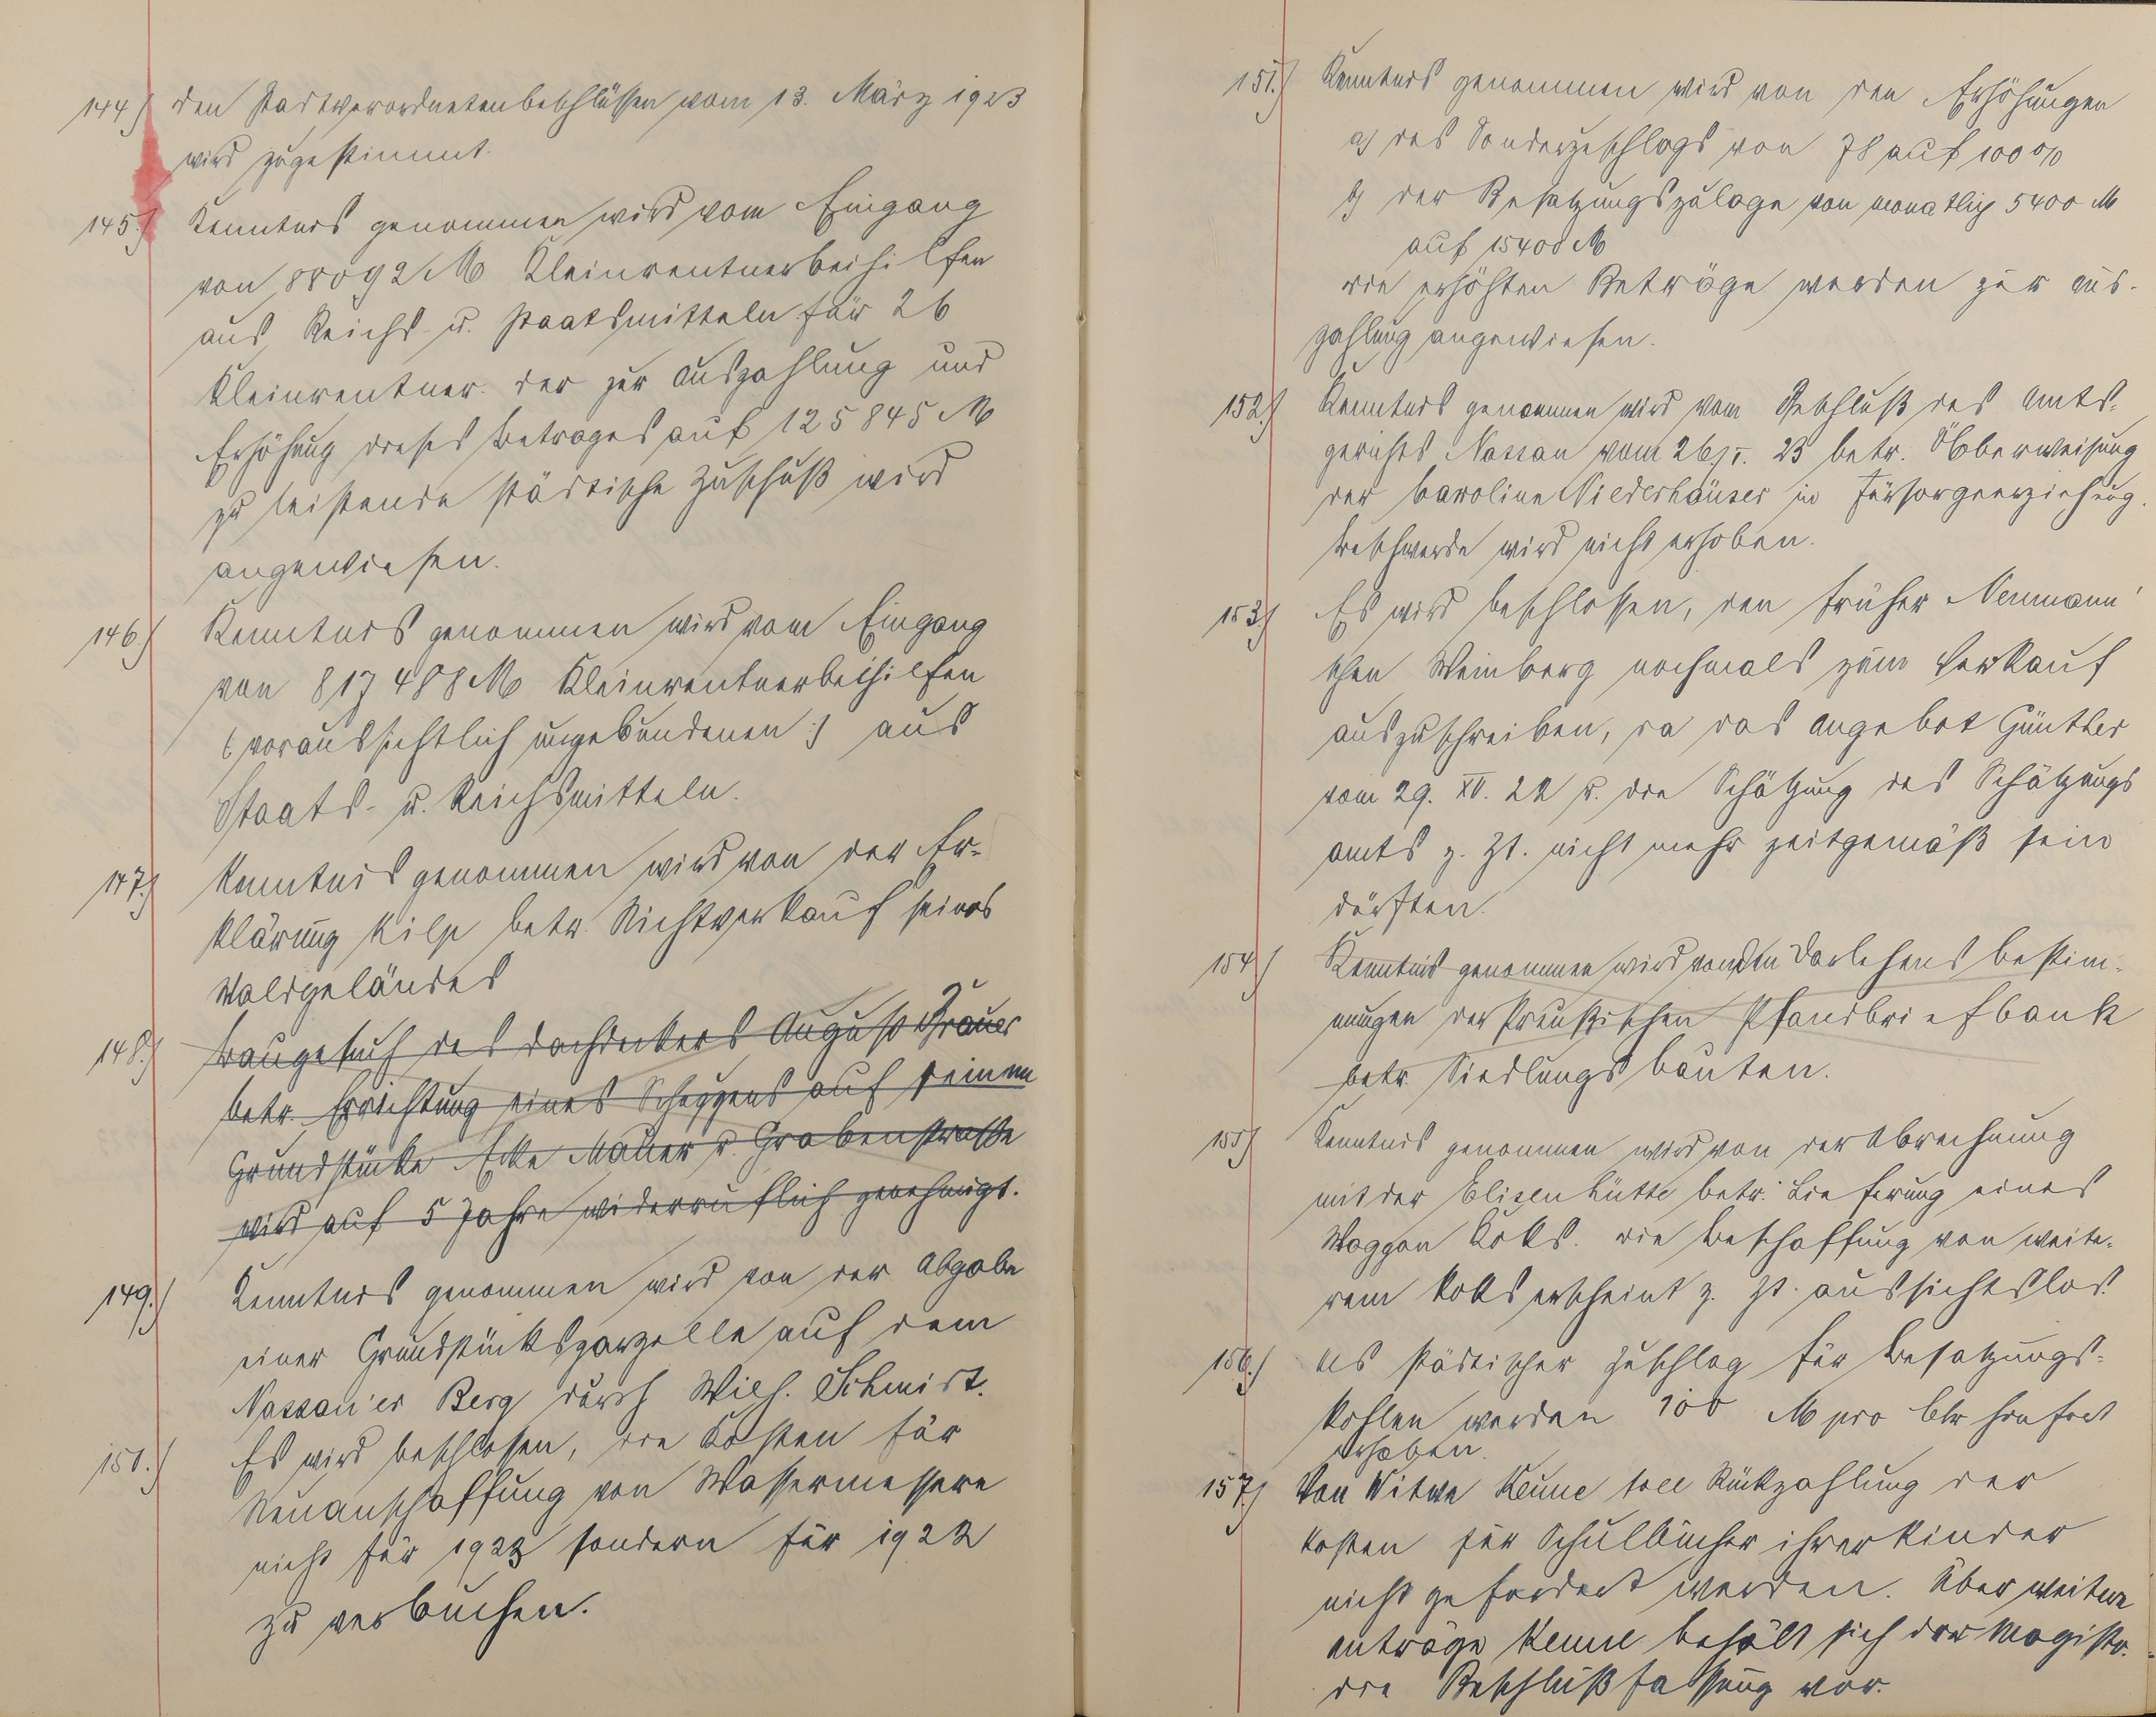 144.) Den Stadtverordnetenbeschlüssen vom 13. März 1923
wird zugestimmt.
145.) Kenntnis genommen wird vom Eingang
von 88092 M Kleinrentnerbeihilfen
aus Reichs- u. Staatsmitteln für 26
Kleinrentner. Der zur Auszahlung und
Erhöhung dieses Betrages auf 125845 M
zu leistende städtische Zuschuß wird
angewiesen.
146.) Kenntnis genommen wird vom Eingang
von 817488 M Kleinrentnerbeihilfen
(: voraussichtlich ungebundenen :) aus
Staats- u. Reichsmitteln.
147.) Kenntnis genommen wird von der Er-
klärung Kilp betr. Nichtverkauf seines
Waldgeländes
148.) Baugesuch des Dachdeckers August Grauer
betr. Errichtung eines Schuppens auf seinem
Grundstücke Ecke Mauer u. Grabenstrasse
wird auf 5 Jahre widerruflich genehmigt.
149.) Kenntnis genommen wird von der Abgabe
einer Grundstücksparzelle auf dem
Nassau'er Berg durch Wilh. Schmidt.
150.) Es wird beschlossen, die Kosten für
Neuanschaffung von Wassermessern
nicht für 1923 sondern für 1922
zu verbuchen.
151.) Kenntnis genommen wird von den Erhöhungen
a) des Sonderzuschlags von 78 auf 100 %
b) der Besatzungszulage von monatlich 5400 M
auf 15400 M
die erhöhten Beträge werden zur Aus-
zahlung angewiesen.
152.) Kenntnis genommen wird vom Beschluß des Amts-
gerichts Nassau vom 26/I. 23 betr. Überweisung
der Caroline Niederhäuser in Fürsorgeerziehung.
Beschwerde wird nicht erhoben.
153.) Es wird beschlossen, den früher Neumann'
schen Weinberg nochmals zum Verkauf
auszuschreiben, da das Angebot Günther
vom 29. XII. 22 u. die Schätzung des Schätzungs
amts z. Zt. nicht mehr zeitgemäß sein
dürften.
154.) Kenntnis genommen wird von den Darlehensbestim-
mungen der Preußischen Pfandbriefbank
betr. Siedlungsbauten.
155.) Kenntnis genommen wird von der Abrechnung
mit der Elisenhütte betr. Lieferung eines
Waggon Koks. Die Beschaffung von weite-
rem Koks erscheint z. Zt. aussichtslos.
156.) Als städtischer Zuschlag für Besatzungs-
kohlen werden 100 M pro Ctr
erhoben.
157.) Von Witwe Keune soll Rückzahlung der
Kosten für Schulbücher ihrer Kinder
nicht gefordert werden. Über weitere
Anträge Keune behält sich der Magistr.
die Beschlußfassung vor.